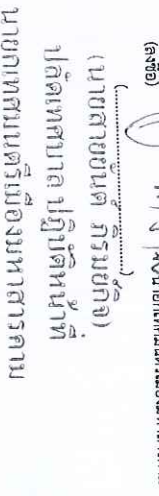 (ลงชื่อ)
(นายสายยันต์ ภิรมย์กิจ)
ปลัดเทศบาล ปฏิบัติหน้าที่
นายกเทศมนตรีเมืองมหาสารคาม